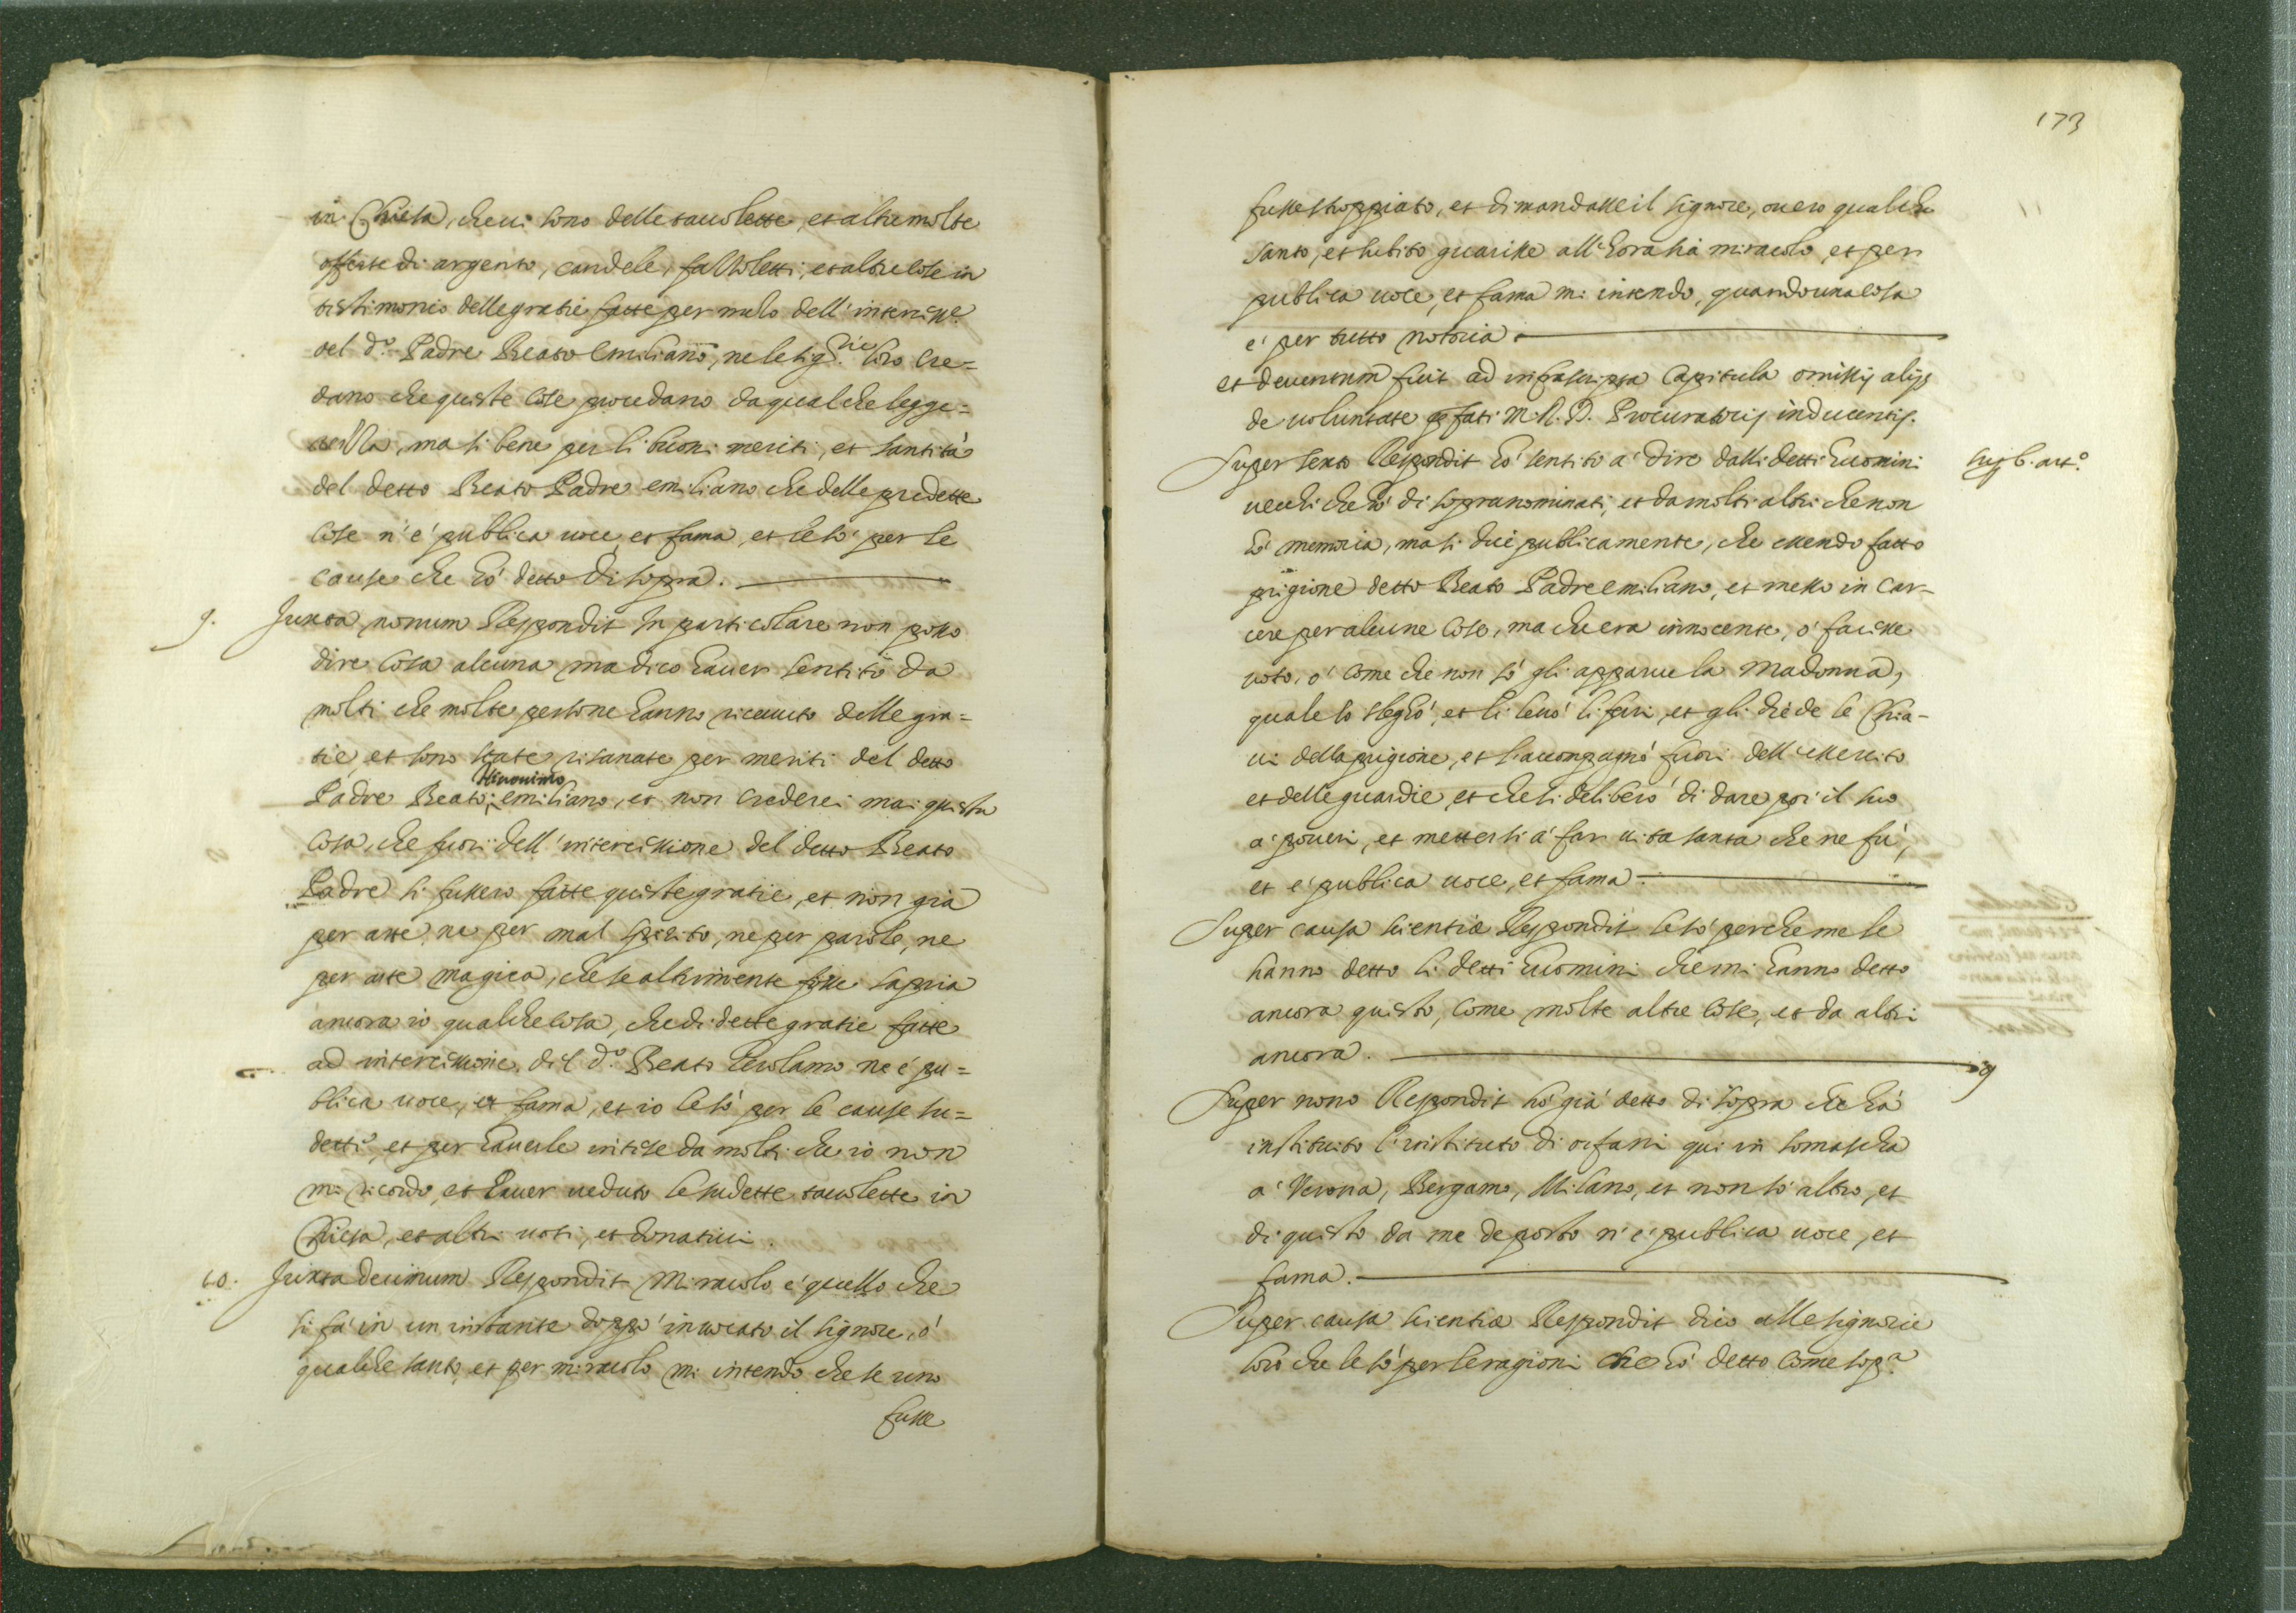 in Chiesa, che vi sono delle tavolette, et altre molte
offerte di argento, candele, fazzoletti, et altre cose in
testimonio delle gratie fatte per mezo dell'interciss.e
del d.o Padre Beato Emiliano, ne le sig.rie loro cre=
dano che queste cose procedano da qualche legge=
rezza, ma si bene per li buoni meriti, et santità
del detto Beato Padre emiliano che delle predette
cose n'è publica voce et fama, et le sò per le
cause che hò detto di sopra.
9. Juxta nonum Respondit In particolare non posso
dire cosa alcuna ma dico haver sentito da
molti che molte persone hanno ricevuto delle gra=
tie, et sono state risanate per meriti del detto
Hieronimo
Padre Beato emiliano, et non crederei mai questa
cosa, che fuori dell'intercissione del detto Beato
Padre si fussero fatte queste gratie, et non già
per arte, ne per mal spirito, ne per parole, ne
per arte magica, che se altrimente fosse sapria
ancora io qualche cosa, che di dette gratie fatte
ad intercissione del d.o Beato Gerolamo ne è pu=
blica voce, et fama, et io le sò per le cause su=
dette, et per haverle intese da molti che io non
mi ricordo, et haver veduto le sudette tavolette in
Chiesa, et altri voti, et donativi.
10. Juxta decimum Respondit Miracolo è quello che
si fà in un instante doppò invocato il signore, ò
qualche santo, et per miracolo mi intendo che se uno
fusse
173
fusse stroppiato, et dimandasse il signore, overo qualche
santo, et subito guarisse all'hora sia miracolo, et per
publica voce, et fama mi intendo, quando una cosa
è per tutto notoria
et deventum fuit ad infrascripta Capitula omissis alijs
de voluntate p.fati M. R. D. Procuratoris inducentis.
Super sexto Respondit hò sentito à dire dalli detti huomini
sup. 6. art.o
vecchi che hò di sopra nominati, et da molti altri che non
hò memoria, ma si dice publicamente, che essendo fatto
prigione detto Beato Padre emiliano, et messo in car-
cere per alcune cose, ma che era innocente, ò facesse
voto, ò come che non sò gli apparve la Madonna,
quale lo slegò, et li levò li ferri, et gli diede le Chia-
vi della prigione, et l'accompagnò fuori dell'essercito
et delle guardie, et che si deliberò di dare poi il suo
à poveri, et mettersi à far vita santa che ne fù,
et è publica voce, et fama
Super causa scientiæ Respondit le sò perche me le
hanno detto li detti huomini che mi hanno detto
ancora questo, come molte altre cose, et da altri
ancora.
9
Super nono Respondit hò già detto di sopra che hà
instituito l'instituto di orfani qui in somascha
à Verona, Bergamo, Milano, et non sò altro, et
di questo da me deposto n'è publica voce, et
fama.
Super causa scientiæ Respondit dico alle signorie
loro che le sò per le ragioni che hò detto come sop.a